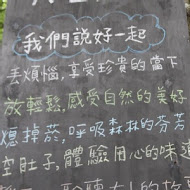 我們說好一起
丟煩惱，享受珍貴的當下
放輕鬆，感受自然的美好
熄掉菸，呼吸森林的芬芳
空肚子，體驗用心的味